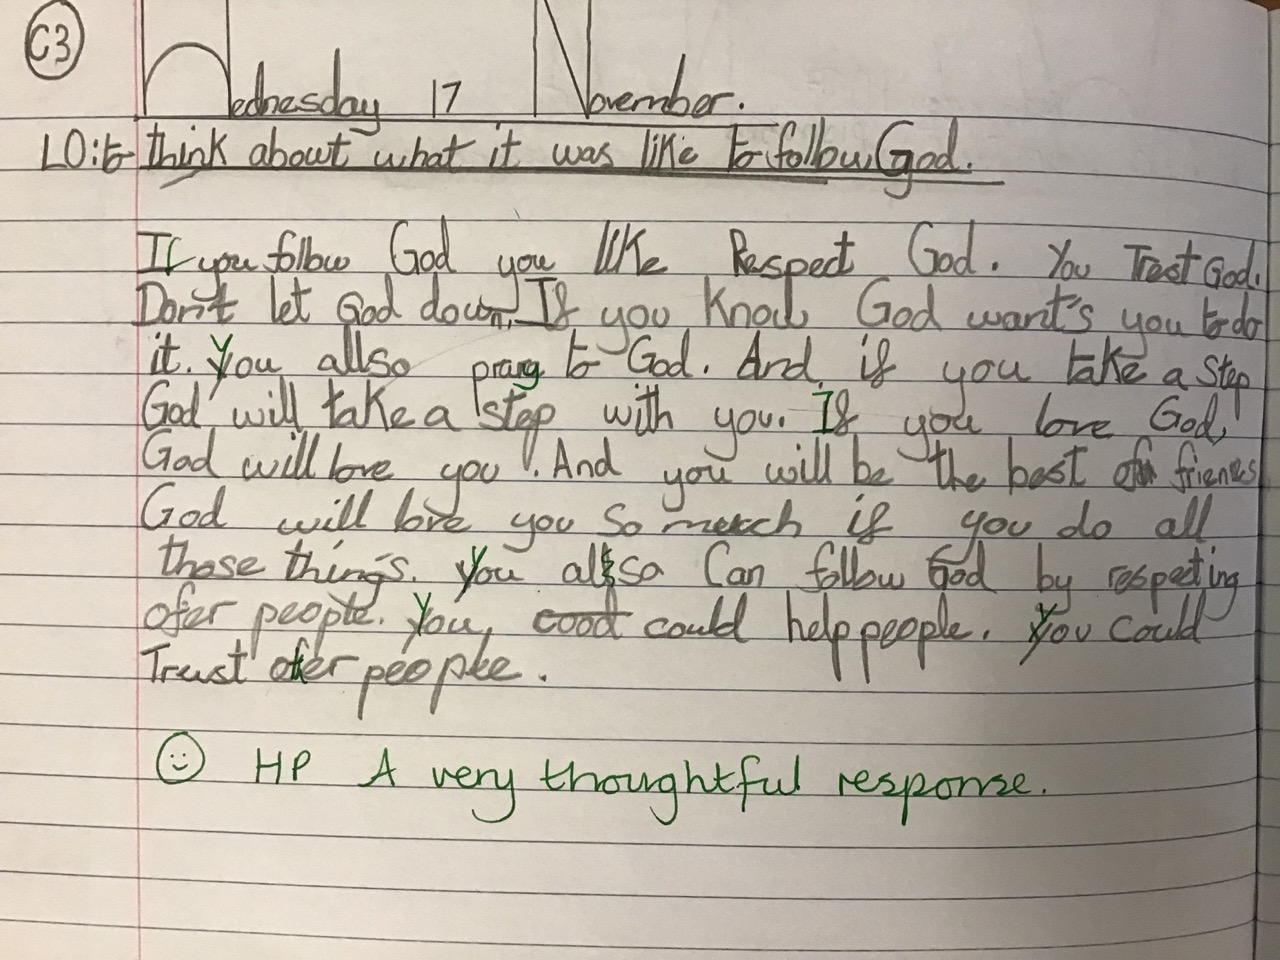 C3
Wednesday 17 November.
LO: to think about what it was like to follow God.
If you follow God you like Respect God. You Trust God.
Don't let God down. If you know God want's you to do
it. You allso pray to God. And if you take a step
God will take a step with you. If you love God,
God will love you. And you will be the best of friends
God will love you so much if you do all
those things. You also can follow God by respecting
ofer people. You, could help people. You could
Trust other people.
HP A very thoughtful response.